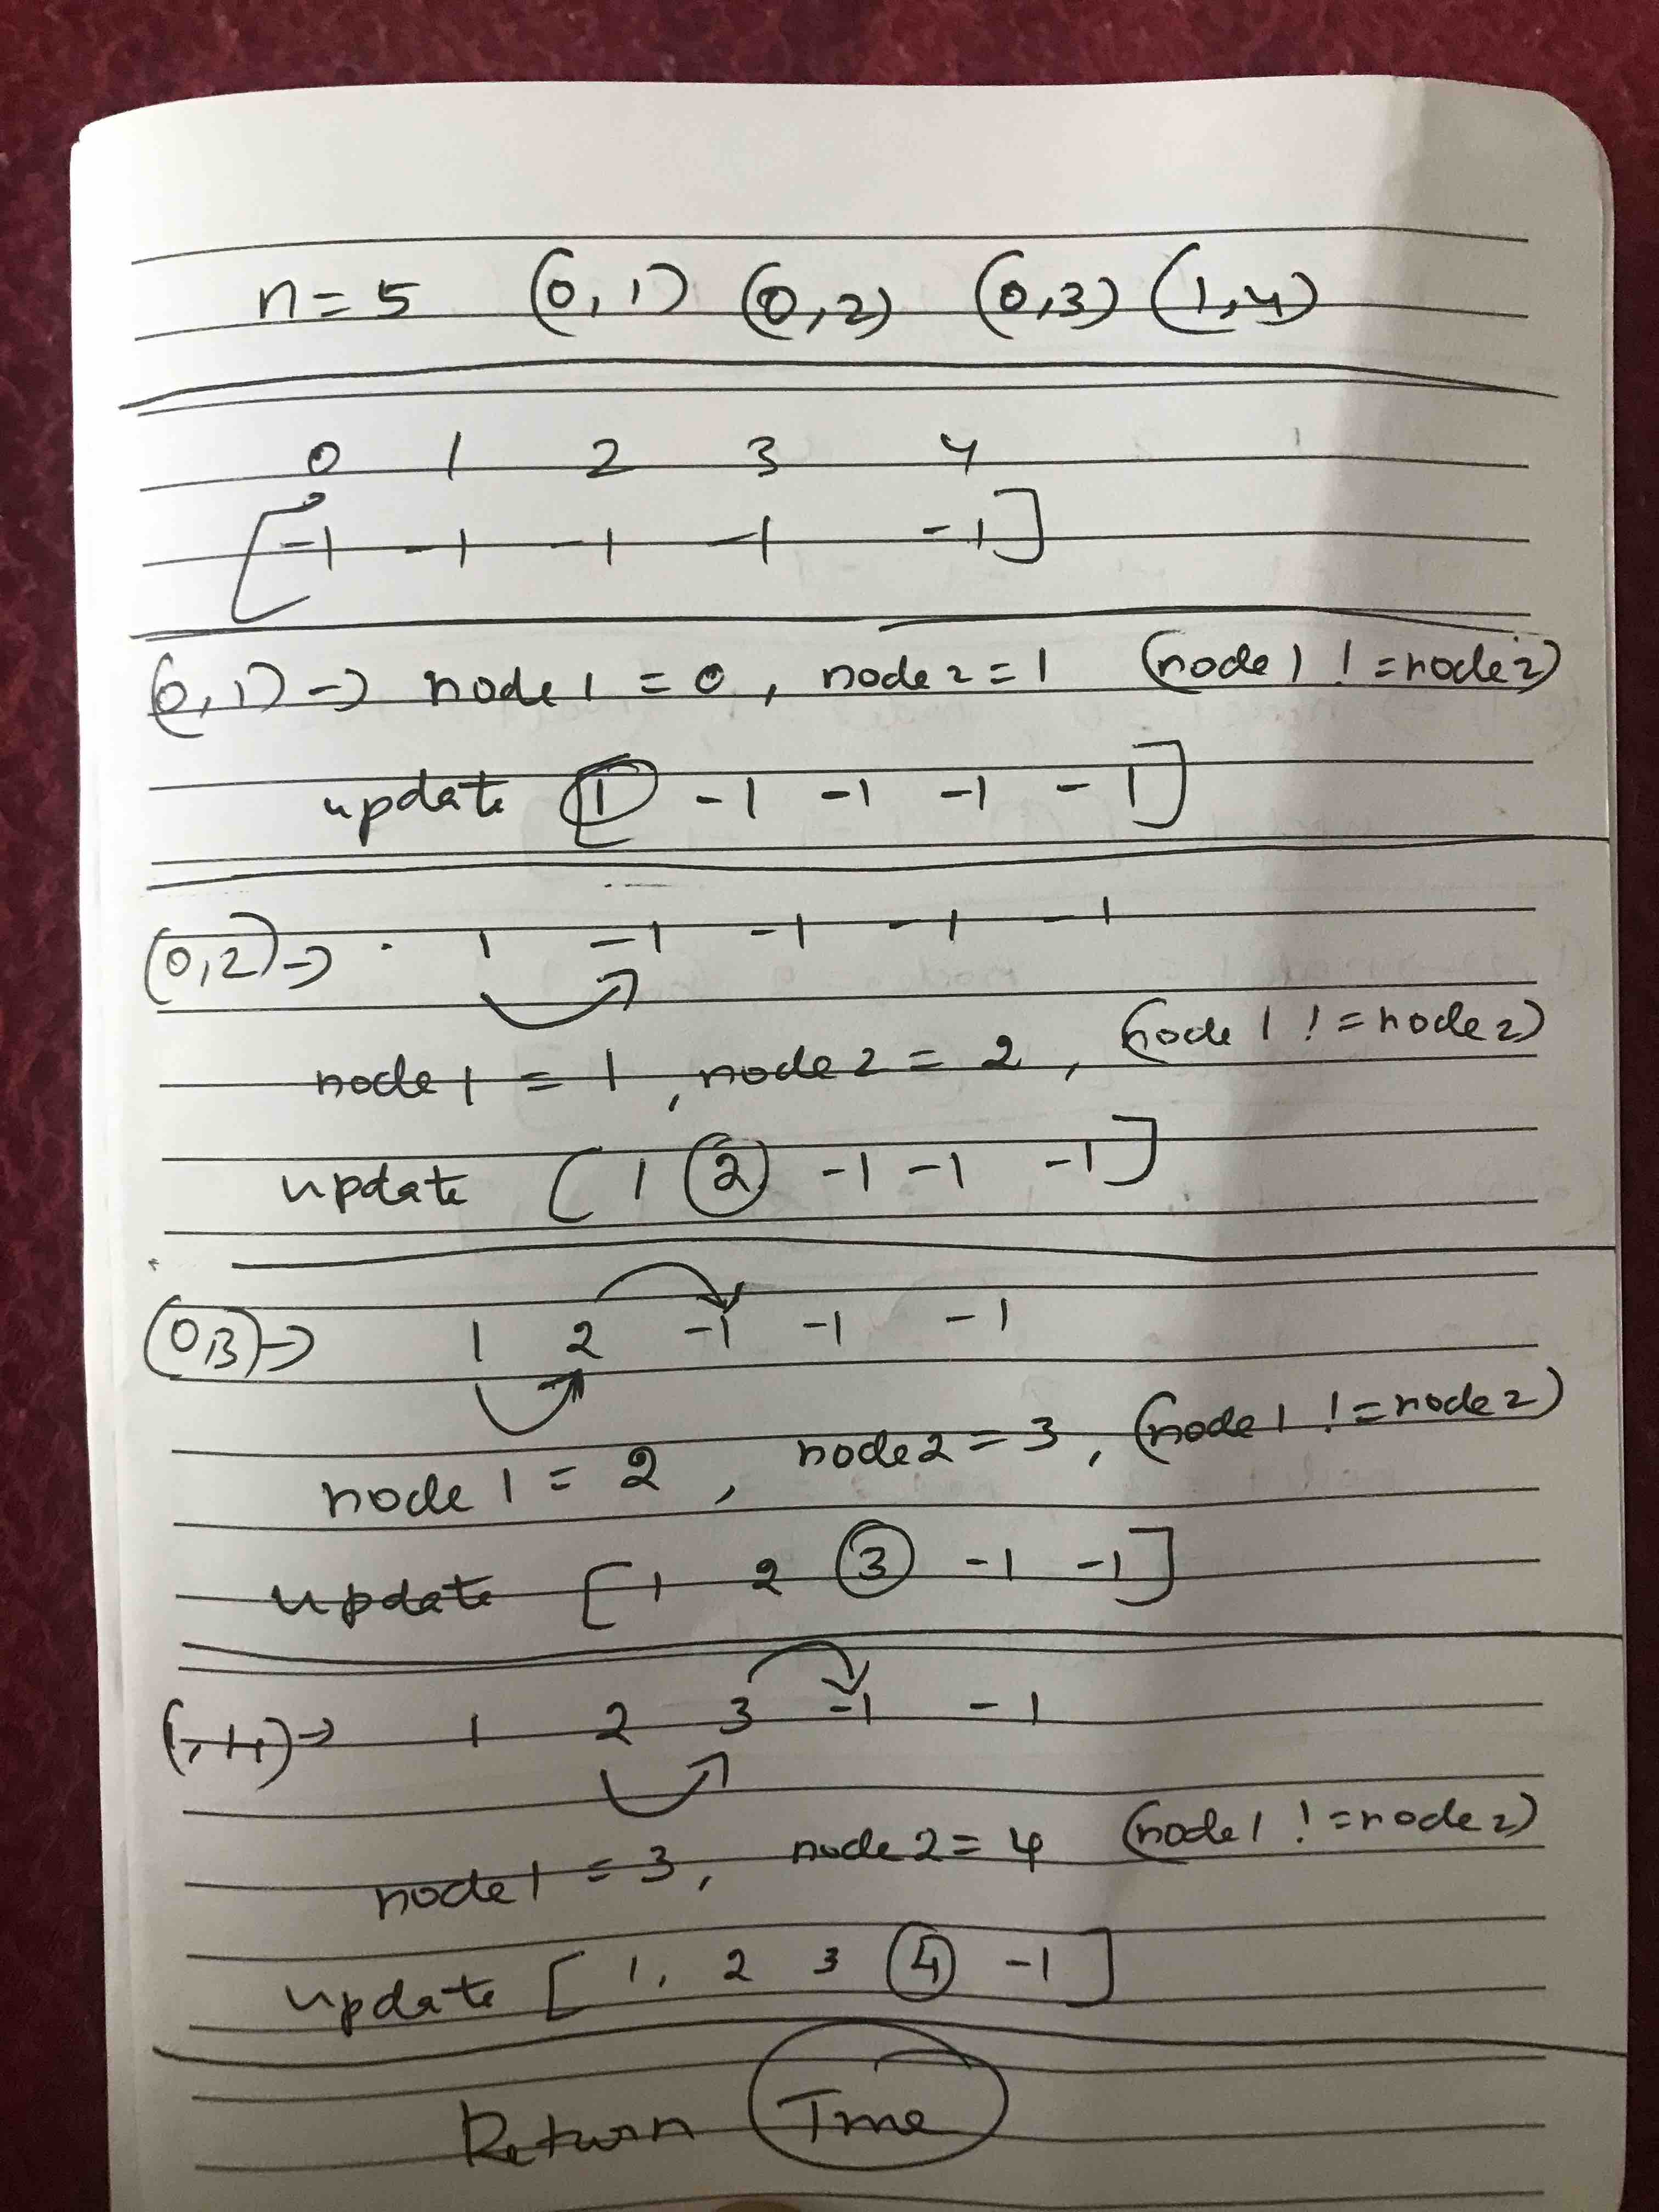 n = 5 (0,1) (0,2) (0,3) (1,4)
0 1 2 3 4
[-1 -1 -1 -1 -1]
(0,1) -> node1 = 0, node2 = 1 (node1 != node2)
update [1 -1 -1 -1 -1]
(0,2) -> 1 -1 -1 -1 -1
node1 = 1, node2 = 2, (node1 != node2)
update [1 2 -1 -1 -1]
(0,3) -> 1 2 -1 -1 -1
node1 = 2, node2 = 3, (node1 != node2)
update [1 2 3 -1 -1]
(1,4) -> 1 2 3 -1 -1
node1 = 3, node2 = 4 (node1 != node2)
update [1, 2 3 4 -1]
Return True